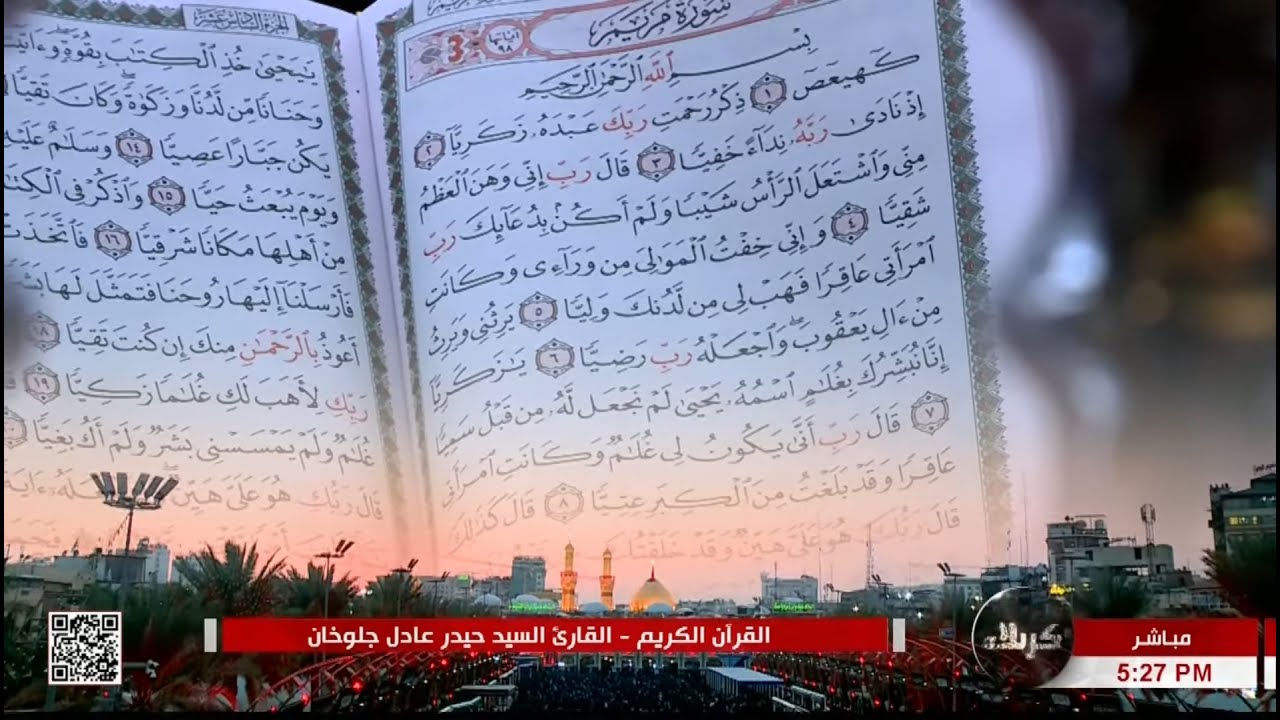 سورة مريم
آياتها ٩٨
بِسْمِ اللَّهِ الرَّحْمَٰنِ الرَّحِيمِ
كٓهيعٓصٓ ١ ذِكْرُ رَحْمَتِ رَبِّكَ عَبْدَهُۥ زَكَرِيَّآ ٢
إِذْ نَادَىٰ رَبَّهُۥ نِدَآءً خَفِيًّا ٣ قَالَ رَبِّ إِنِّي وَهَنَ ٱلْعَظْمُ
مِنِّي وَٱشْتَعَلَ ٱلرَّأْسُ شَيْبًا وَلَمْ أَكُنۢ بِدُعَآئِكَ رَبِّ
شَقِيًّا ٤ وَإِنِّي خِفْتُ ٱلْمَوَٰلِيَ مِن وَرَآءِي وَكَانَتِ
ٱمْرَأَتِي عَاقِرًا فَهَبْ لِي مِن لَّدُنكَ وَلِيًّا ٥ يَرِثُنِي وَيَرِثُ
مِنْ ءَالِ يَعْقُوبَ ۖ وَٱجْعَلْهُ رَبِّ رَضِيًّا ٦ يَٰزَكَرِيَّآ
إِنَّا نُبَشِّرُكَ بِغُلَٰمٍ ٱسْمُهُۥ يَحْيَىٰ لَمْ نَجْعَل لَّهُۥ مِن قَبْلُ سَمِيًّا
٧ قَالَ رَبِّ أَنَّىٰ يَكُونُ لِي غُلَٰمٌ وَكَانَتِ ٱمْرَأَتِي
عَاقِرًا وَقَدْ بَلَغْتُ مِنَ ٱلْكِبَرِ عِتِيًّا ٨ قَالَ كَذَٰلِكَ
قَالَ رَبُّكَ هُوَ عَلَيَّ هَيِّنٌ وَقَدْ خَلَقْتُكَ
الجزء السادس عشر
يَٰيَحْيَىٰ خُذِ ٱلْكِتَٰبَ بِقُوَّةٍ ۖ وَءَاتَيْنَ
وَحَنَانًا مِّن لَّدُنَّا وَزَكَوٰةً ۖ وَكَانَ تَقِيًّا
يَكُن جَبَّارًا عَصِيًّا ١٤ وَسَلَٰمٌ عَلَيْهِ
وَيَوْمَ يُبْعَثُ حَيًّا ١٥ وَٱذْكُرْ فِي ٱلْكِتَٰ
مِنْ أَهْلِهَا مَكَانًا شَرْقِيًّا ١٦ فَٱتَّخَذَتْ
فَأَرْسَلْنَآ إِلَيْهَا رُوحَنَا فَتَمَثَّلَ لَهَا
أَعُوذُ بِٱلرَّحْمَٰنِ مِنكَ إِن كُنتَ تَقِيًّا ١٨
رَبِّكِ لِأَهَبَ لَكِ غُلَٰمًا زَكِيًّا ١٩
غُلَٰمٌ وَلَمْ يَمْسَسْنِي بَشَرٌ وَلَمْ أَكُ بَغِيًّا
قَالَ رَبُّكِ هُوَ عَلَيَّ هَيِّنٌ
القرآن الكريم - القارئ السيد حيدر عادل جلوخان
كربلاء
مباشر
5:27 PM